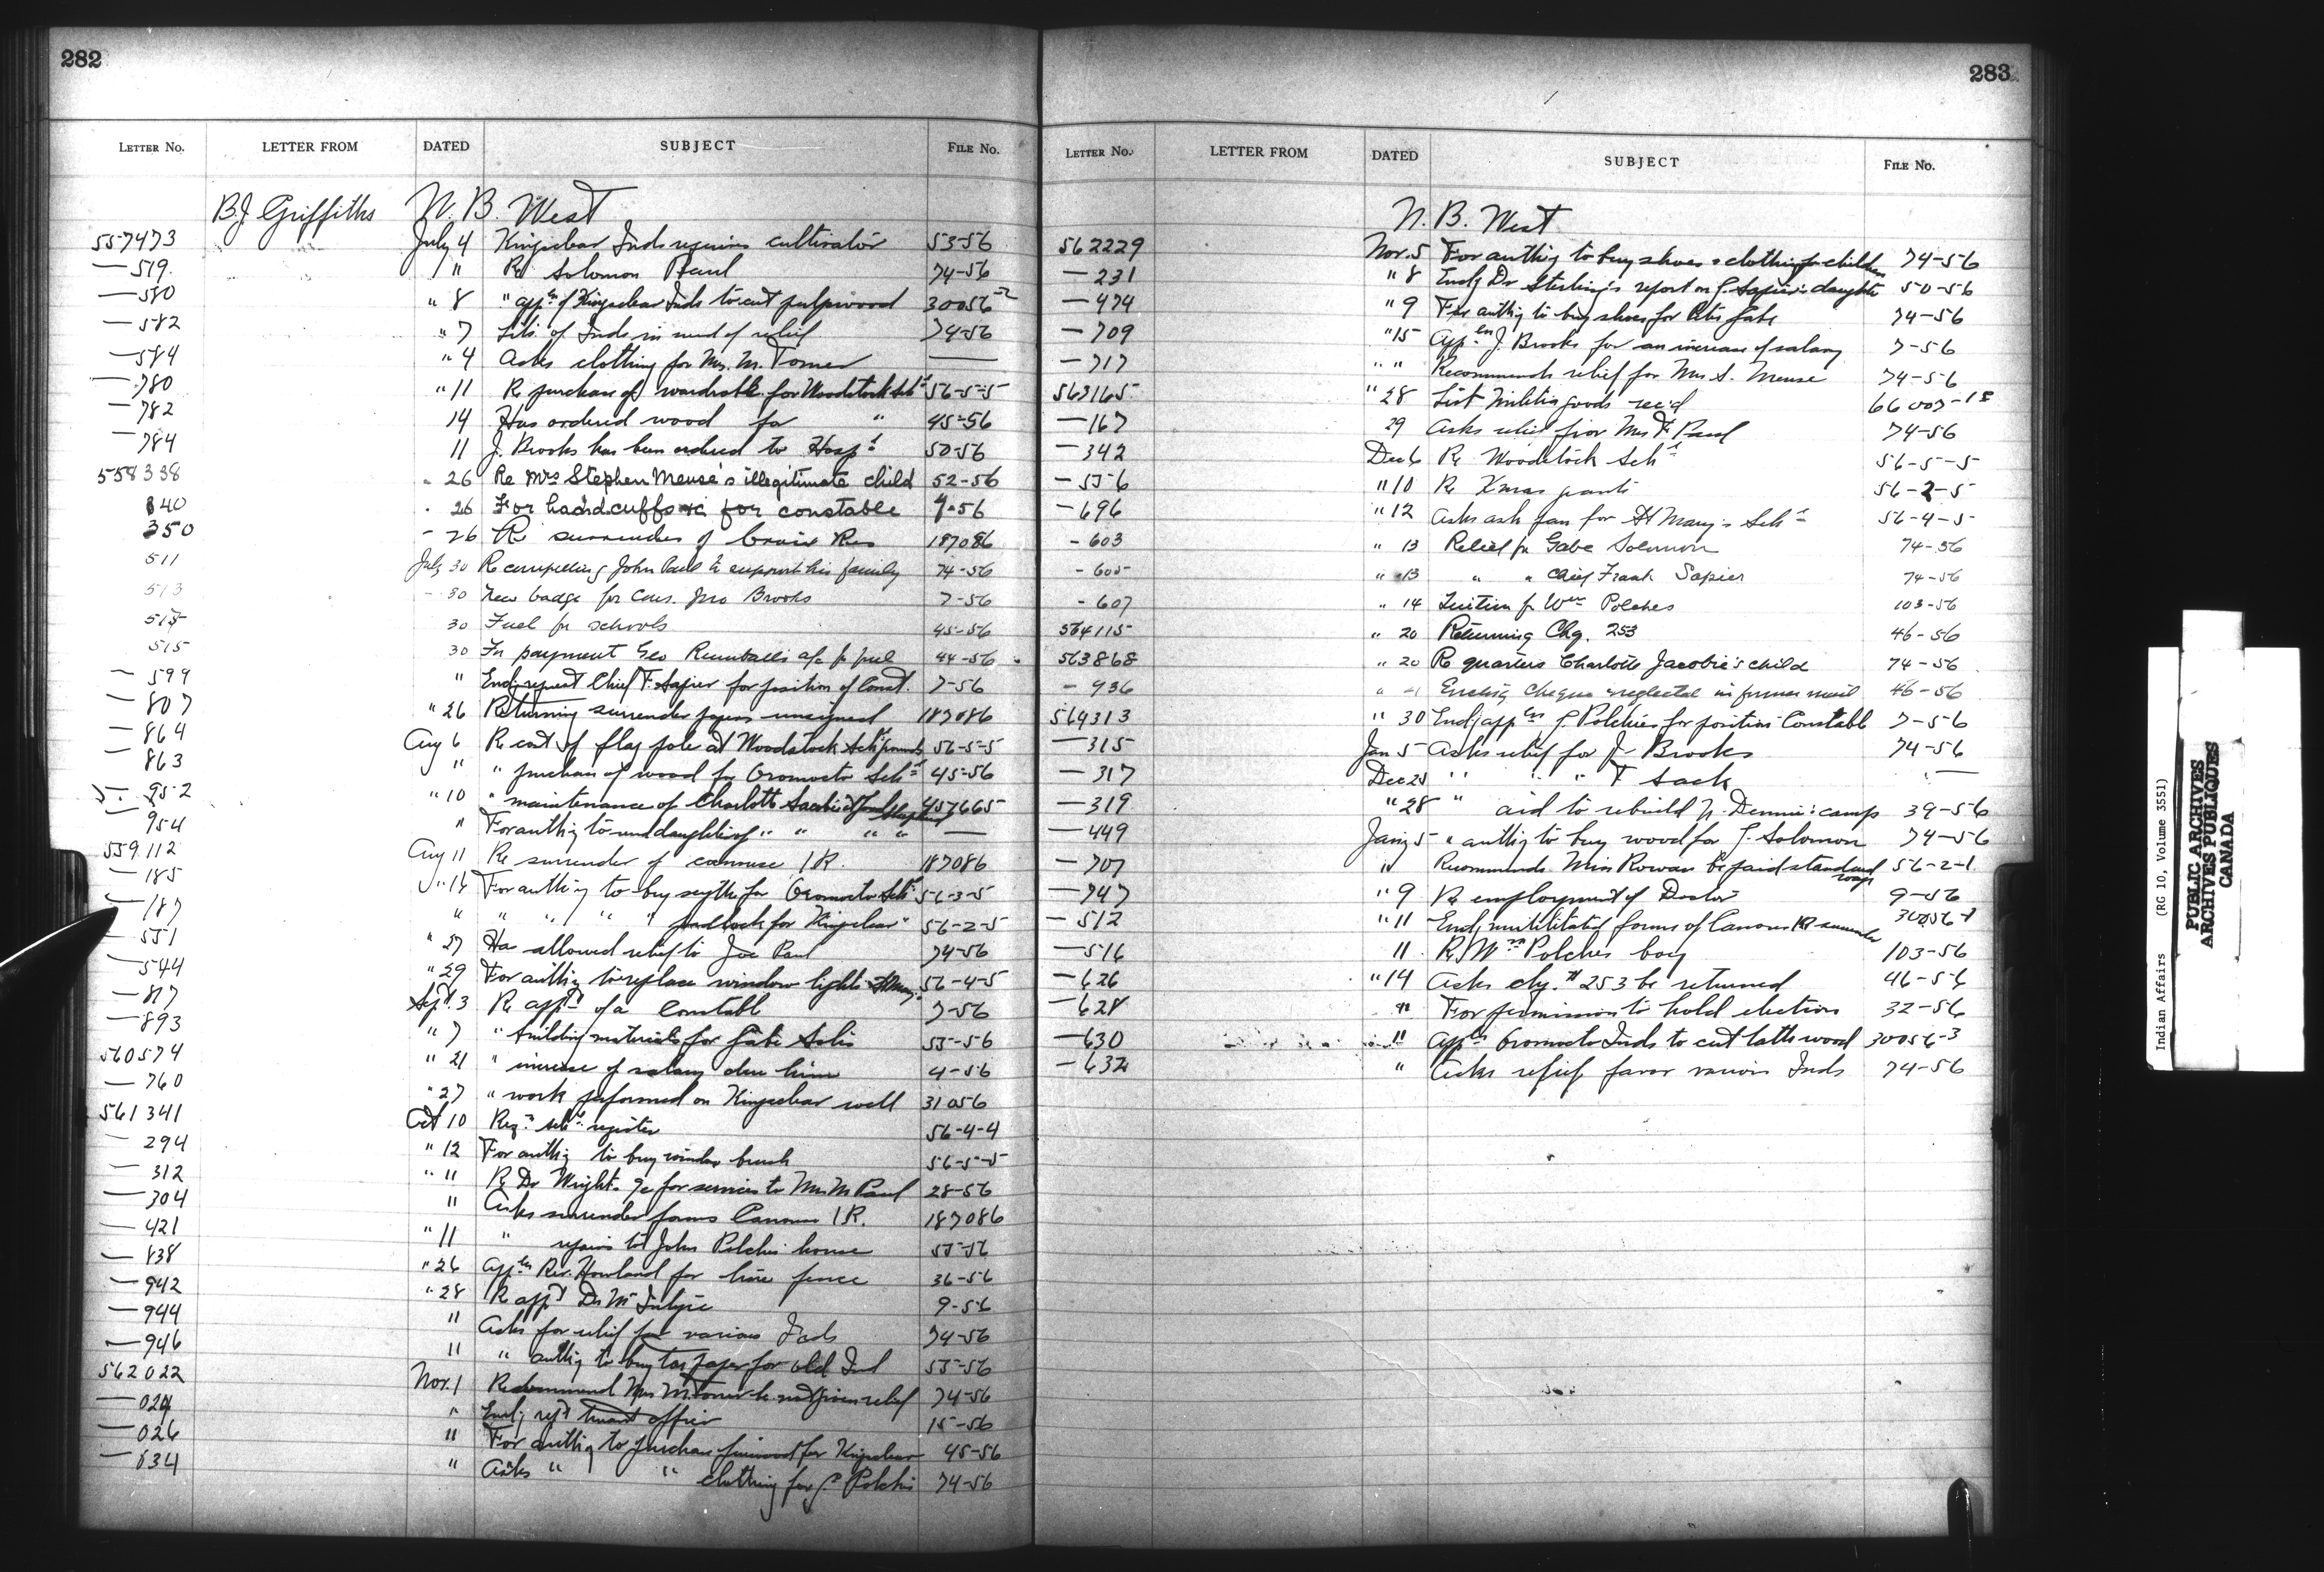 282
LETTER NO. LETTER FROM DATED SUBJECT FILE NO.
B.J. Griffiths N. B. West
557473 July 4 Kingsclear Inds require cultivator 53-56
— 519. " Re Solomon Paul 74-56
— 580 " 8 " appln of Kingsclear Inds to cut pulpwood 30056-2
— 582 " 7 List of Inds in need of relief 74-56
— 584 " 4 Asks clothing for Mrs. M. Tomer —
— 780 " 11 Re purchase of wardrobe for Woodstock Schl 56-5-5
— 782 14 Has ordered wood for " 45-56
— 784 11 J. Brooks has been ordered to Hospl 50-56
558338 " 26 Re Mrs Stephen Meuse's illegitimate child 52-56
340 " 26 For handcuffs &c for constable 7-56
350 " 26 Re surrender of Res 187086
511 July 30 Re compelling John Paul to support his family 74-56
513 " 30 New badge for Cons. Jno Brooks 7-56
30 Fuel for schools 45-56
515 30 For payment Geo a/c for fuel 44-56
— 599 " Encl'g request Chief F. Sapier for position of Const. 7-56
— 807 " 26 Returning surrender papers unsigned 187086
— 864 Aug 6 Re cost of flag pole at Woodstock Schl grounds 56-5-5
— 863 " " purchase of wood for Oromocto Schl 45-56
— 952 " 10 " maintenance of Charlotte 457665
— 954 " For auth'y to daughter of " " " " —
559112 Aug 11 Re surrender of canouse I R. 187086
— 185 " 14 For auth'y to buy scythe for Oromocto Schl 56-3-5
— 187 " " " " " padlock for Kingsclear " 56-2-5
— 551 " 27 Has allowed relief to Joe Paul 74-56
— 544 " 29 For auth'y to replace window lights St Mary's 56-4-5
— 817 Sept. 3 Re appt of a Constable 7-56
— 893 " 7 " building materials for Gabe Solis 55-56
560574 " 21 " increase of salary due him 4-56
— 760 " 27 " work performed on Kingsclear well 31056
561341 Oct 10 Reqn schl register 56-4-4
— 294 " 12 For auth'y to buy window brush 56-5-5
— 312 " 11 Re Dr Wright's a/c for services to Mrs M Paul 28-56
— 304 " Asks surrender forms Canouse I R. 187086
— 421 " 11 " repairs to John Polchis house 55-56
— 838 " 26 Appln Rev. Howland for line fence 36-56
— 942 " 28 Re appt Dr McIntyre 9-56
— 944 " Asks for relief for various Inds 74-56
— 946 " " auth'y to buy tar paper for old Ind 55-56
562022 Nov. 1 Recommend Mrs M. Tomer be not given relief 74-56
— 024 " Encl'g rept truant officer 15-56
— 026 " For auth'y to purchase firewood for Kingsclear 45-56
— 034 " Asks " " clothing for P. Polchis 74-56
283
LETTER NO. LETTER FROM DATED SUBJECT FILE NO.
N. B. West
562229 Nov. 5 For auth'y to buy shoes & clothing for children 74-56
— 231 " 8 Encl'g Dr Sterling's report on J. Sapier's daughter 50-56
— 474 " 9 For auth'y to buy shoes for Gabe 74-56
— 709 " 15 Appln J. Brooks for an increase of salary 7-56
— 717 " " Recommends relief for Mrs S. Meuse 74-56
563165 " 28 List Militia goods rec'd 66007-18
— 167 29 Asks relief for Mrs F Paul 74-56
— 342 Dec 6 Re Woodstock Schl 56-5-5
— 556 " 10 Re Xmas 56-2-5
— 696 " 12 Asks ash pan for St Mary's Schl 56-4-5
- 603 " 13 Relief for Gabe Solomon 74-56
- 605 " 13 " " Chief Frank Sapier 74-56
- 607 " 14 Tuition for Wm Polches 103-56
564115 " 20 Returning Chq. 253 46-56
563868 " 20 Re quarters Charlotte Jacobie's child 74-56
- 936 " Encl'g cheque neglected in former mail 46-56
564313 " 30 Encl'g appln J. Polchies for position Constable 7-56
— 315 Jan 5 Asks relief for J. Brooks 74-56
— 317 Dec 28 " " " F Sack " —
— 319 " 28 " aid to rebuild N. Dennis' camp 39-56
— 449 Jany 5 " auth'y to buy wood for J. Solomon 74-56
— 707 " Recommends Miss Rowan be paid standard wage 56-2-1
— 747 " 9 Re employment of Doctor 9-56
— 512 " 11 Encl'g mutilated forms of Canouse IR surrender
— 516 11 Re Wm Polches boy 103-56
— 626 " 14 Asks chq. # 253 be returned 46-56
— 628 " For permission to hold election 32-56
— 630 " Appln Oromocto Inds to cut lathwood 30056-3
— 632 " Asks relief favor various Inds 74-56
Indian Affairs (RG 10, Volume 3551)
PUBLIC ARCHIVES
ARCHIVES PUBLIQUES
CANADA